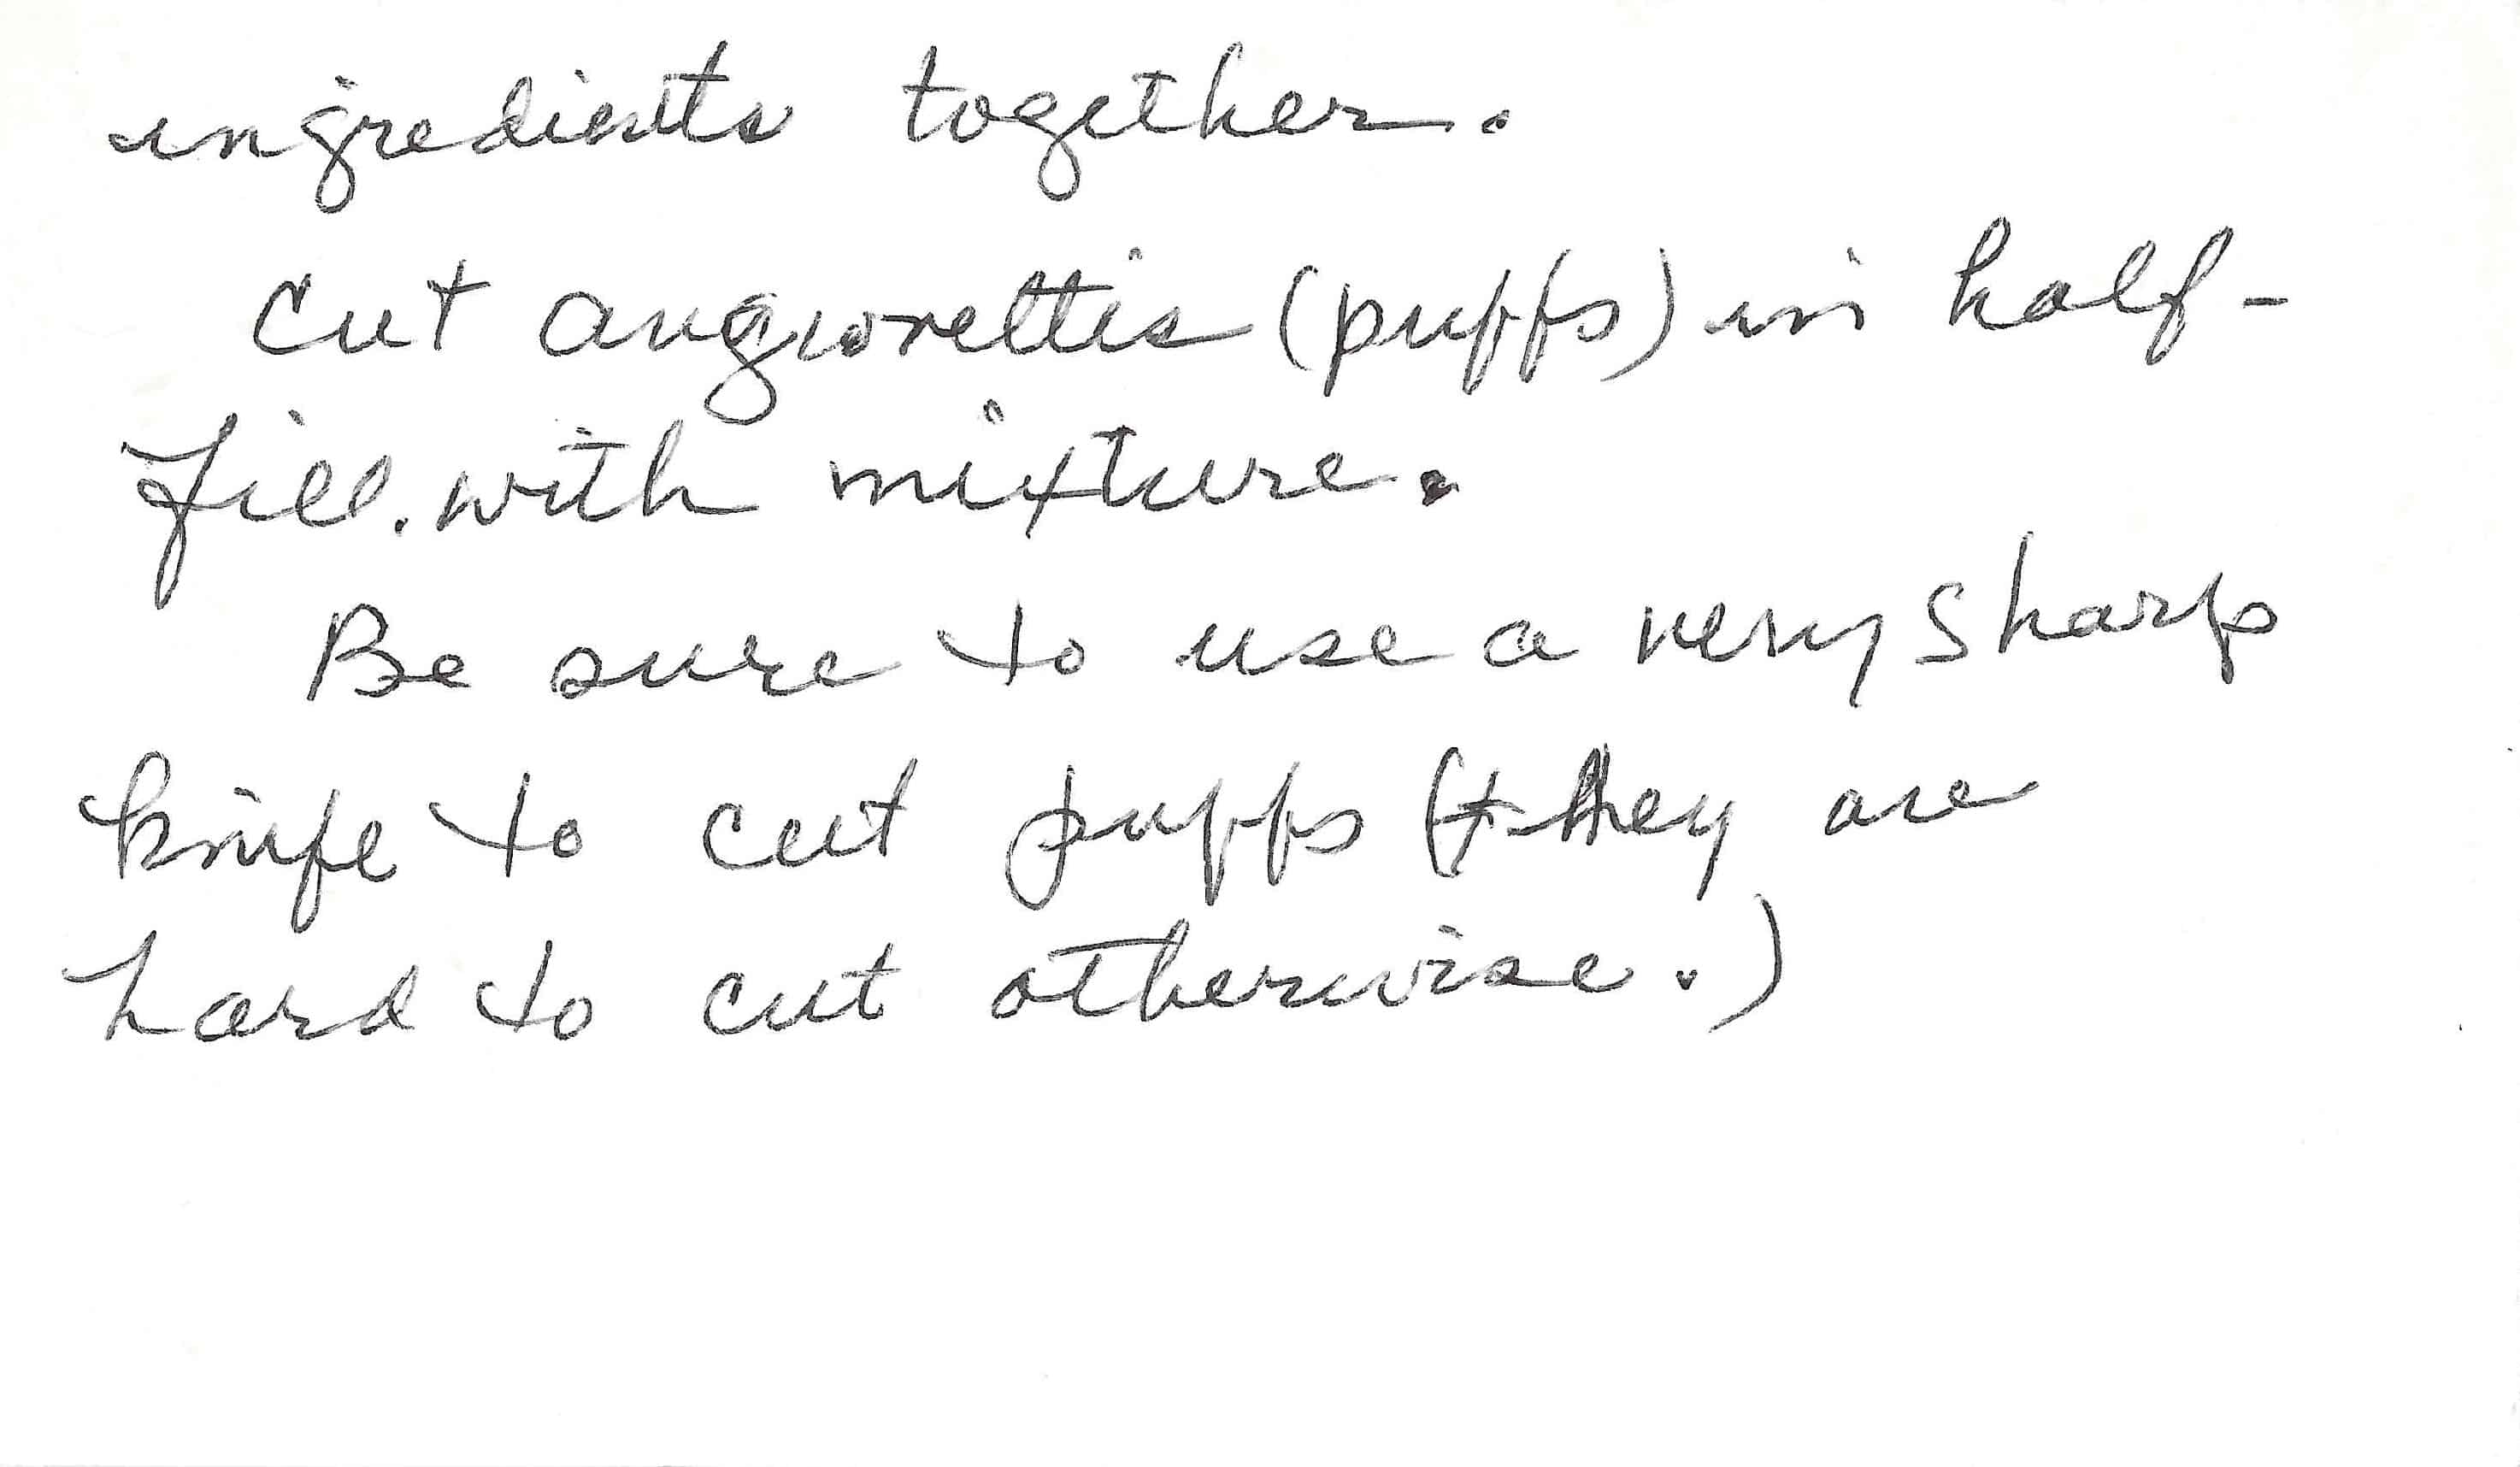 ingredients together.
Cut angiorettis (puffs) in half -
fill. with mixture.
Be sure to use a very sharp
knife to cut puffs (they are
hard to cut otherwise.)